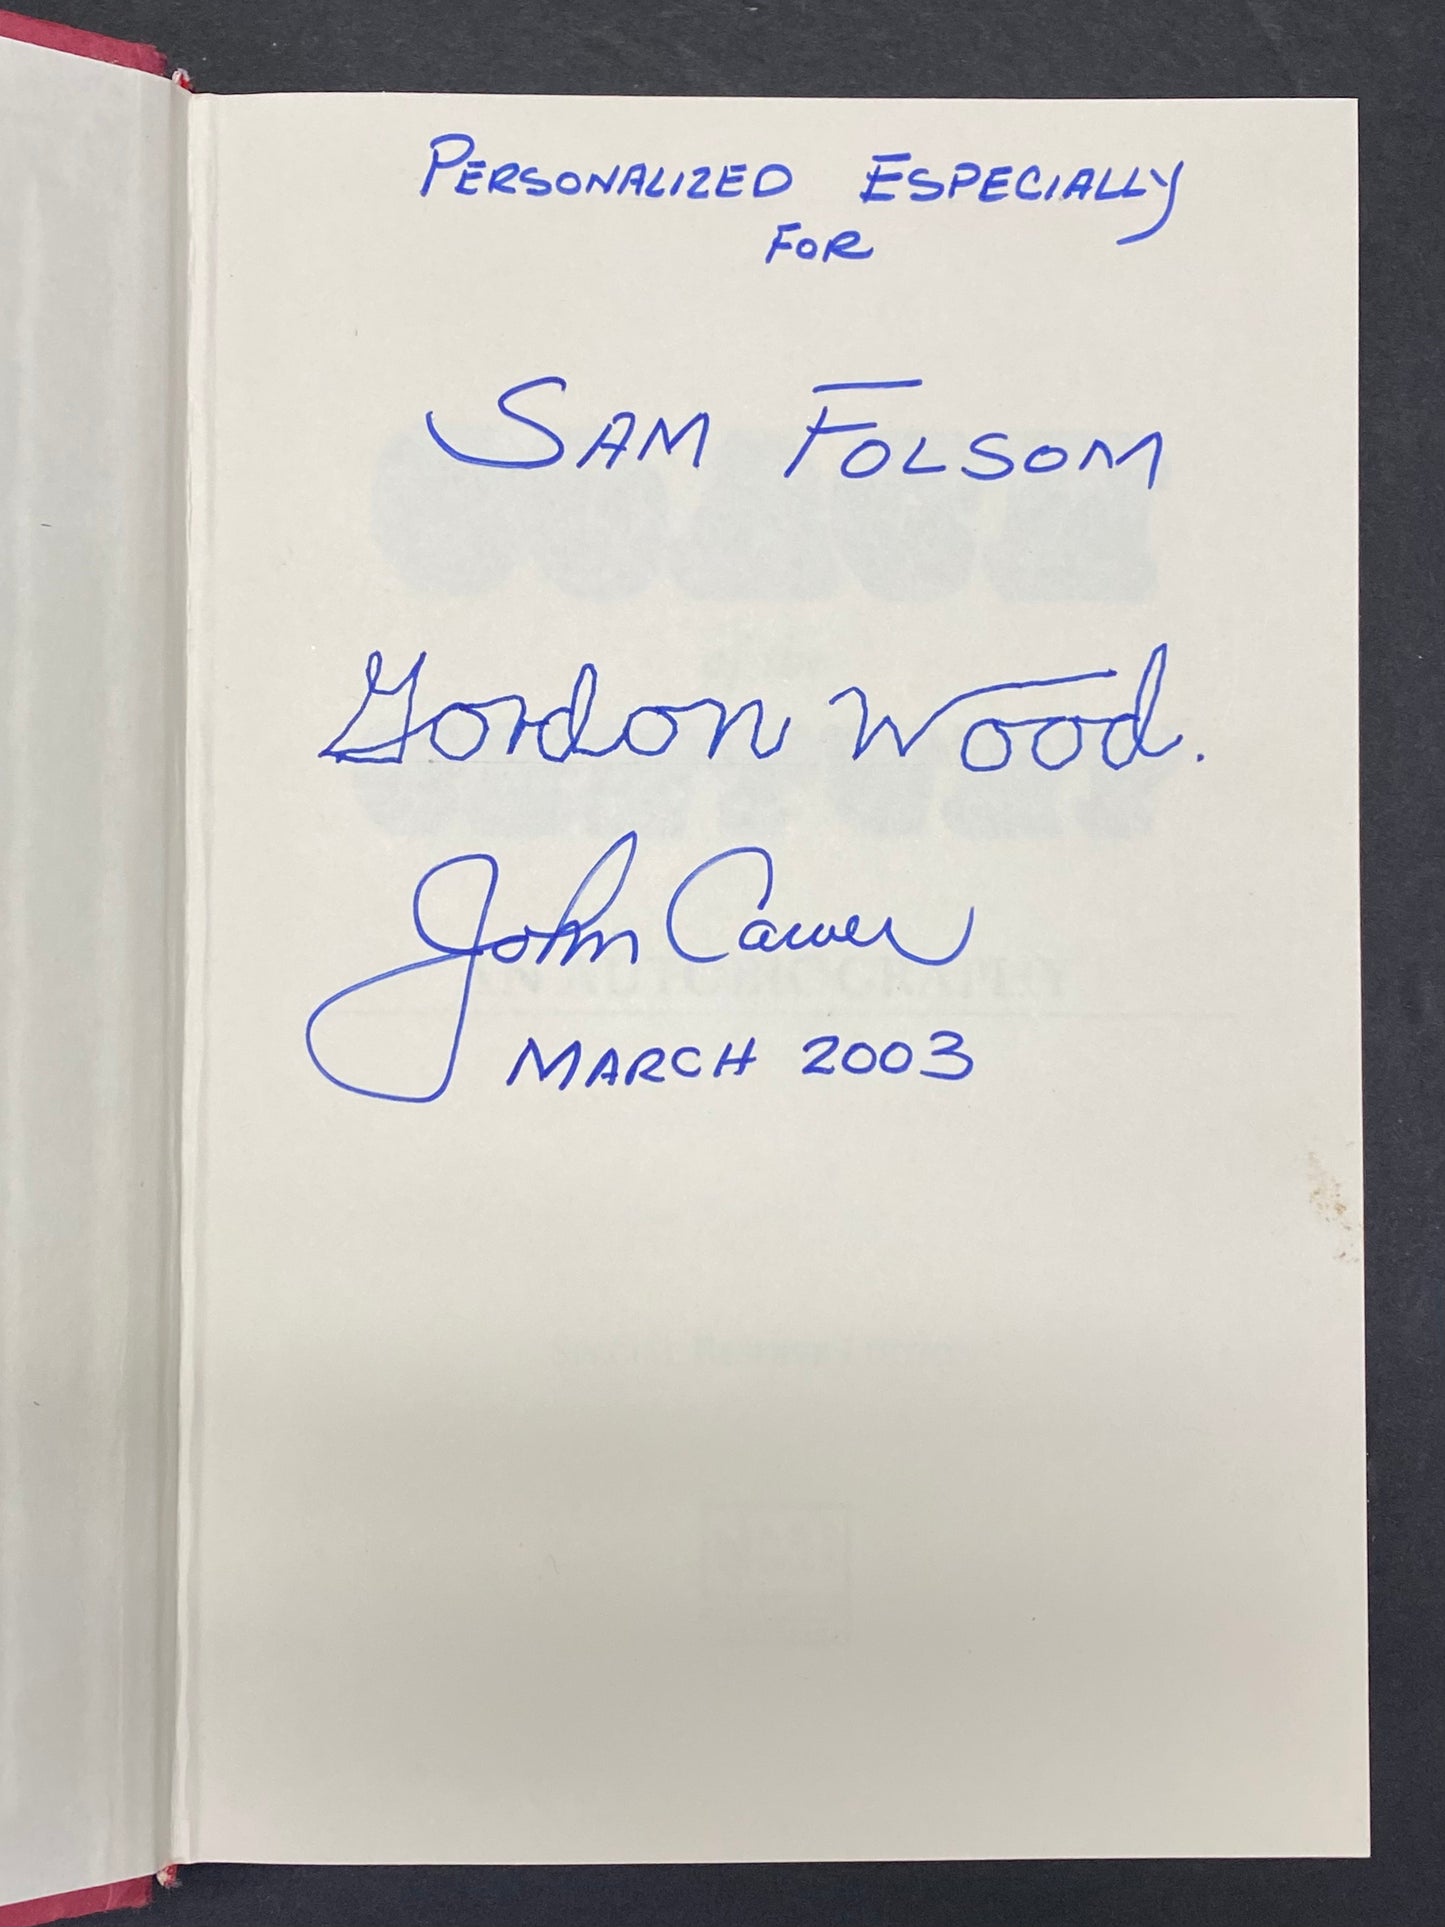 PERSONALIZED ESPECIALLY
FOR
SAM FOLSOM
Gordon Wood.
John Carver
MARCH 2003
AN AUTOBIOGRAPHY